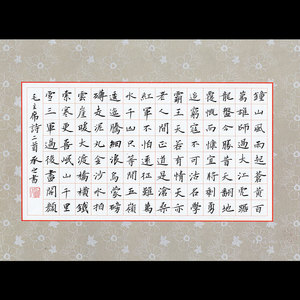 鍾山風雨起蒼黃百
萬雄師過大江虎踞
龍盤今勝昔天翻地
覆慨而慷宜將剩勇
追窮寇不可沽名學
霸王天若有情天亦
老人間正道是滄桑
紅軍不怕遠征難萬
水千山只等閒五嶺
逶迤騰細浪烏蒙磅
礴走泥丸金沙水拍
雲崖暖大渡橋橫鐵
索寒更喜岷山千里
雪三軍過後盡開顏
毛主席詩二首 書